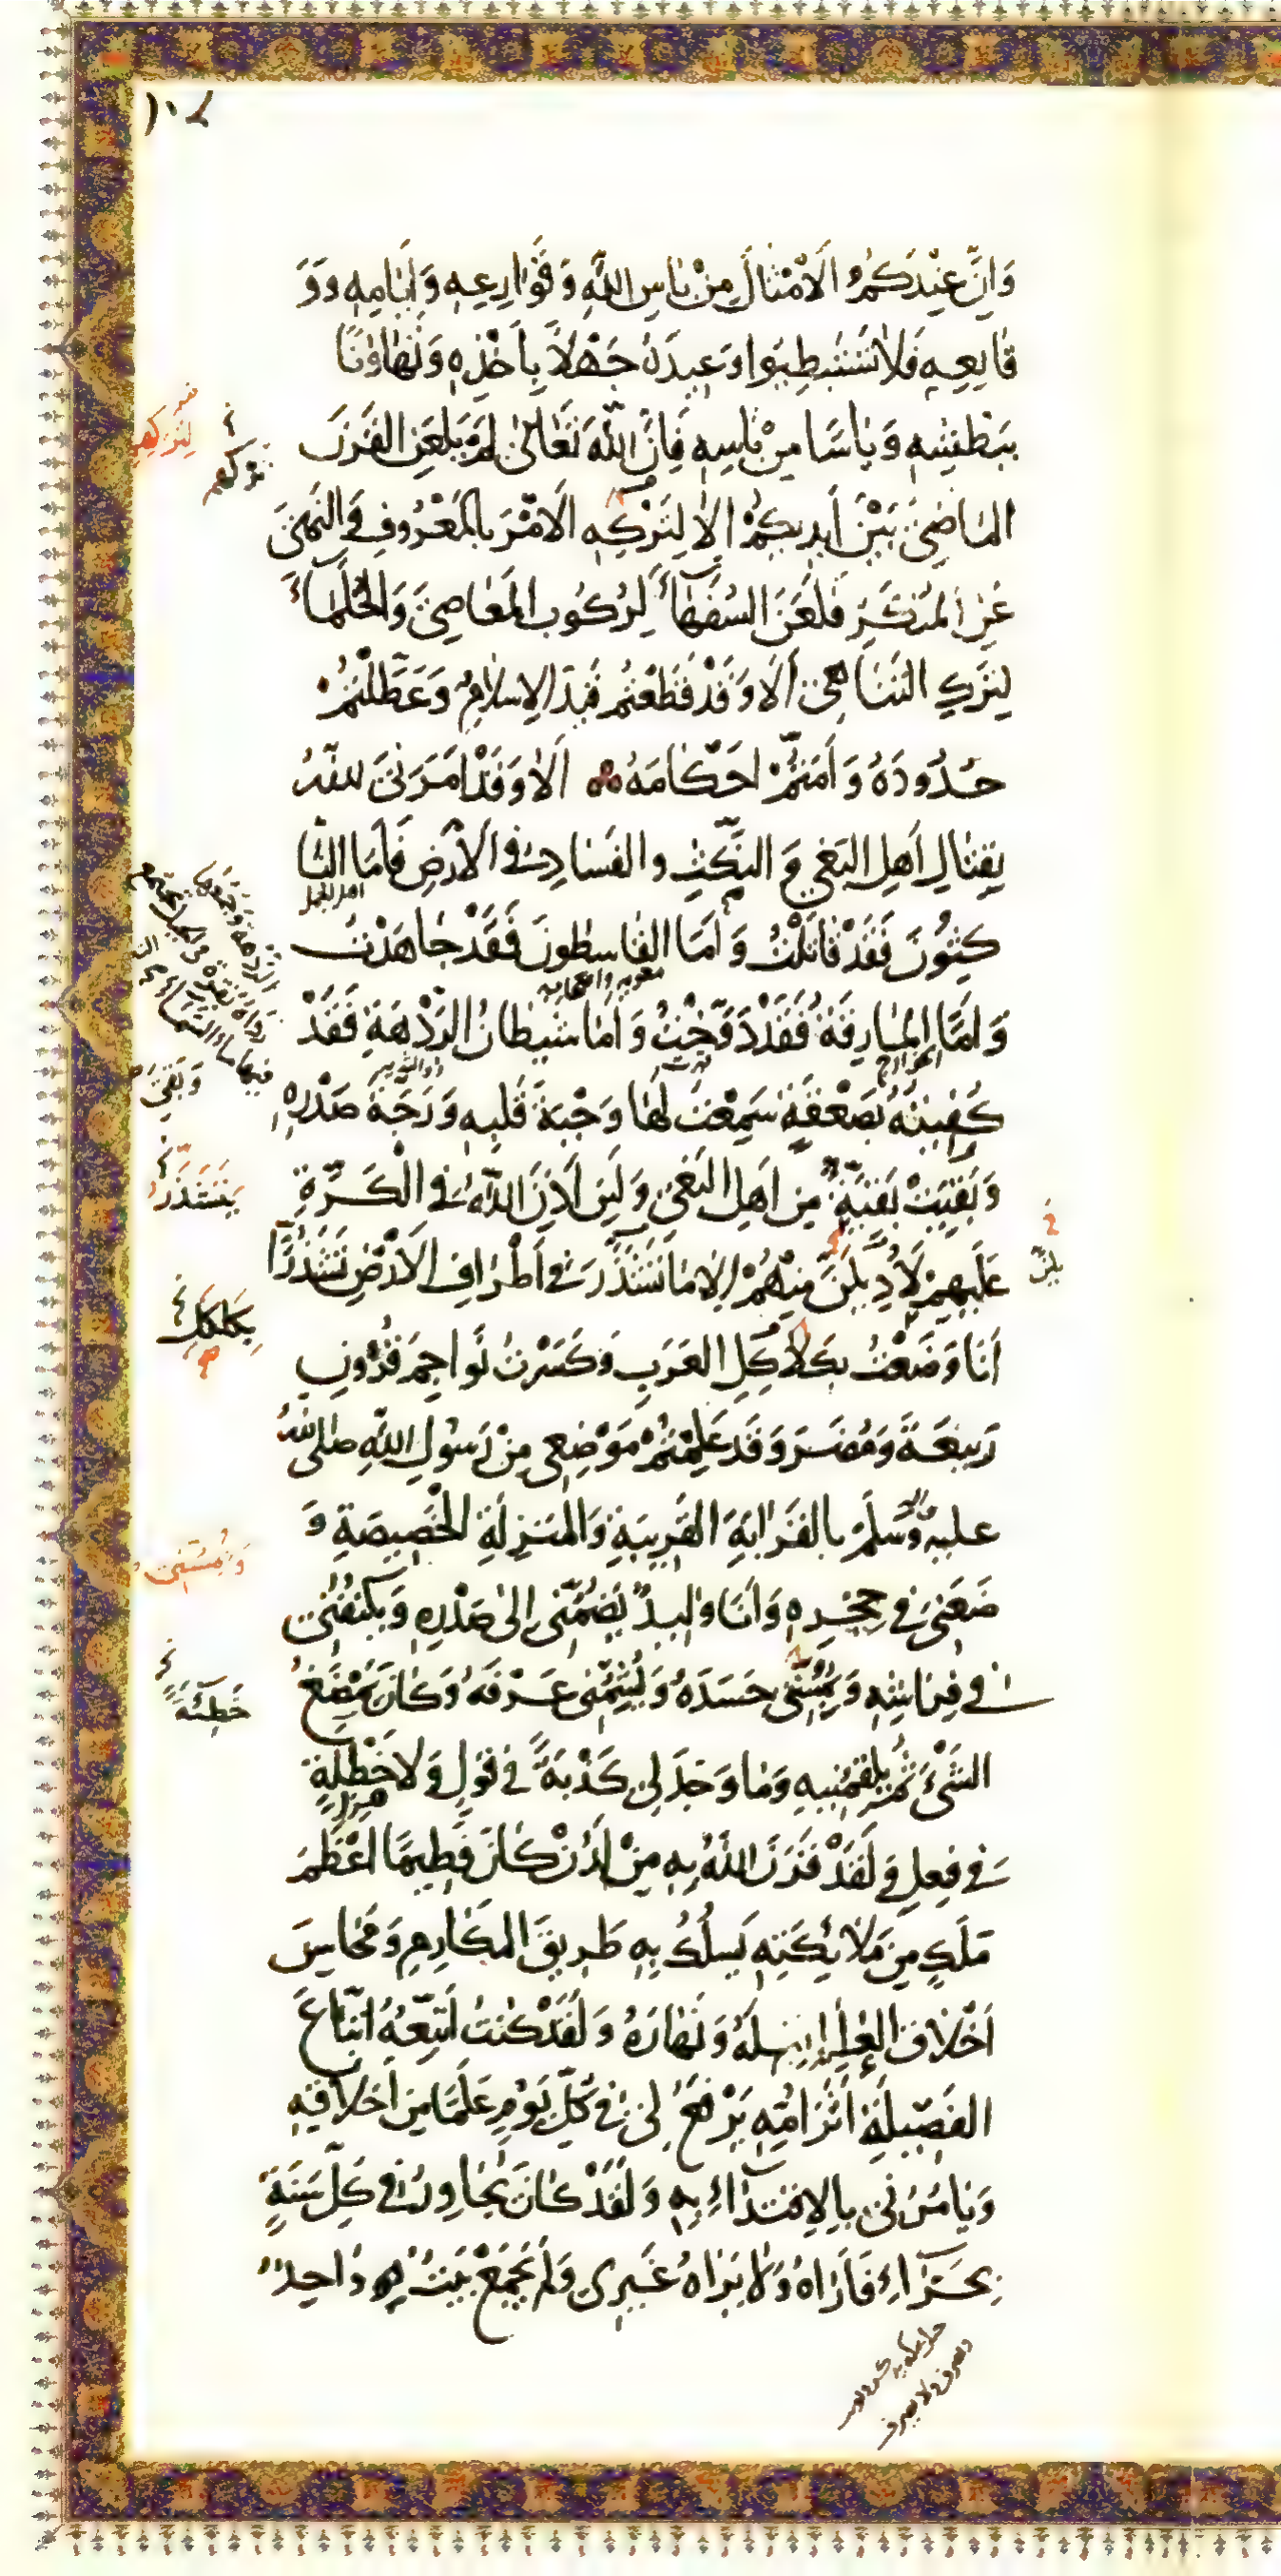 ١٠٢
وَاِنَّ عِنْدَكُمُ الْاَمْثالَ مِنْ بَاسِ اللّٰهِ وَ قَوٰارِعِهِ وَ اَيّامِهِ وَ وَ
قٰايِعِهِ فَلٰا تَسْتَبْطِئوا وَعِيدَهُ جَهْلًا بِاَخْذِهِ وَ تَهٰاوُنًا
بِبَطْشِهِ وَ يٰاسًا مِنْ بَاسِهِ فَاِنَّ اللّٰهَ تَعٰالىٰ لَمْ يَلْعَنِ الْقَرْنَ
الماضِيَ بَيْنَ اَيْدِيكُمْ اِلّٰا لِتَرْكِهِ الْاَمْرَ بِالْمَعْرُوفِ وَ النَّهْيَ
عَنِ الْمُنْكَرِ فَلَعَنَ السُّفَهٰآءَ لِرُكُوبِ الْمَعٰاصِيَ وَ الْحُلَمٰاءَ
لِتَرْكِ التَّنٰاهِي اَلٰا وَ قَدْ قَطَعْتُمْ قَيْدَ الْاِسْلٰامِ وَ عَطَّلْتُمْ
حُدُودَهُ وَ اَمَتُّمْ اَحْكٰامَهُ اَلٰا وَ قَدْ اَمَرَنِيَ اللّٰهُ
بِقِتٰالِ اَهْلِ الْبَغْيِ وَ النَّكْثِ و الْفَسَادِ فِي الْاَرْضِ فَاَمَّا النّٰا
اهل الجمل
كِثُونَ فَقَدْ قٰاتَلْتُ وَ اَمَّا الْقٰاسِطُونَ فَقَدْ جٰاهَدْتُ
معويه و اصحابه
وَ اَمَّا الْمٰارِقَةُ فَقَدْ دَوَّخْتُ وَ اَمّٰا شَيْطٰانُ الرَّدْهَةِ فَقَدْ
الخوارج
ذو الثديه
كُفِيتُهُ بِصَعْقَةٍ سَمِعْتُ لَهٰا وَجْبَةَ قَلْبِهِ وَ رَجَّةَ صَدْرِهِ
وَ بَقِيَتْ بَقِيَّةٌ مِنْ اَهْلِ الْبَغْيِ وَ لَئِنْ اَذِنَ اللّٰهُ فِي الْكَرَّةِ
عَلَيْهِمْ لَاُدِيلَنَّ مِنْهُمْ اِلّٰا مَا تَشَذَّرَ فِي اَطْرَافِ الْاَرْضِ تَشَذُّرًا
اَنَا وَضَعْتُ بِكَلٰاكِلِ الْعَرَبِ وَ كَسَرْتُ نَوٰاجِمَ قُرُونِ
رَبِيعَةَ وَ مُضَرَ وَ قَدْ عَلِمْتُمْ مَوْضِعِي مِنْ رَسُولِ اللّٰهِ صلى اللّٰه
عليه و آله وَ سَلَّمَ بِالْقَرٰابَةِ الْقَرِيبَةِ وَ الْمَنْزِلَةِ الْخَصِيصَةِ وَ
ضَعَنِي فِي حِجْرِهِ وَ اَنَا وَلِيدٌ يَضُمُّنِي اِلىٰ صَدْرِهِ وَ يَكْنُفُنِي
فِي فِرٰاشِهِ وَ يُمِسُّنِي جَسَدَهُ وَ يُشِمُّنِي عَرْفَهُ وَ كَانَ يَمْضَغُ
الشَّيْءَ ثُمَّ يُلْقِمُنِيهِ وَ مٰا وَجَدَ لِي كَذْبَةً فِي قَوْلٍ وَ لَا خَطْلَةً
فِي فِعْلٍ وَ لَقَدْ قَرَنَ اللّٰهُ بِهِ مِنْ لَدُنْ كَانَ فَطِيمًا اَعْظَمَ
مَلَكٍ مِنْ مَلٰائِكَتِهِ يَسْلُكُ بِهِ طَرِيقَ الْمَكٰارِمِ وَ مَحٰاسِنَ
اَخْلٰاقِ الْعٰالَمِ لَيْلَهُ وَ نَهٰارَهُ وَ لَقَدْ كُنْتُ اَتَّبِعُهُ اتِّبٰاعَ
الْفَصِيلِ اَثَرَ اُمِّهِ يَرْفَعُ لِي فِي كُلِّ يَوْمٍ عَلَمًا مِنْ اَخْلٰاقِهِ
وَ يَامُرُنِي بِالْاِقْتِدٰاءِ بِهِ وَ لَقَدْ كَانَ يُجٰاوِرُ فِي كُلِّ سَنَةٍ
بِحَرٰاءَ فَاَرٰاهُ وَ لٰا يَرٰاهُ غَيْرِي وَ لَمْ يَجْمَعْ بَيْتٌ وٰاحِدٌ
لِتَرْكِهِمْ
تركهم
يَتَشَذَّرُ
بِكَلْكَلِ
وَ يُمِسُّنِي
خَطِئَةً